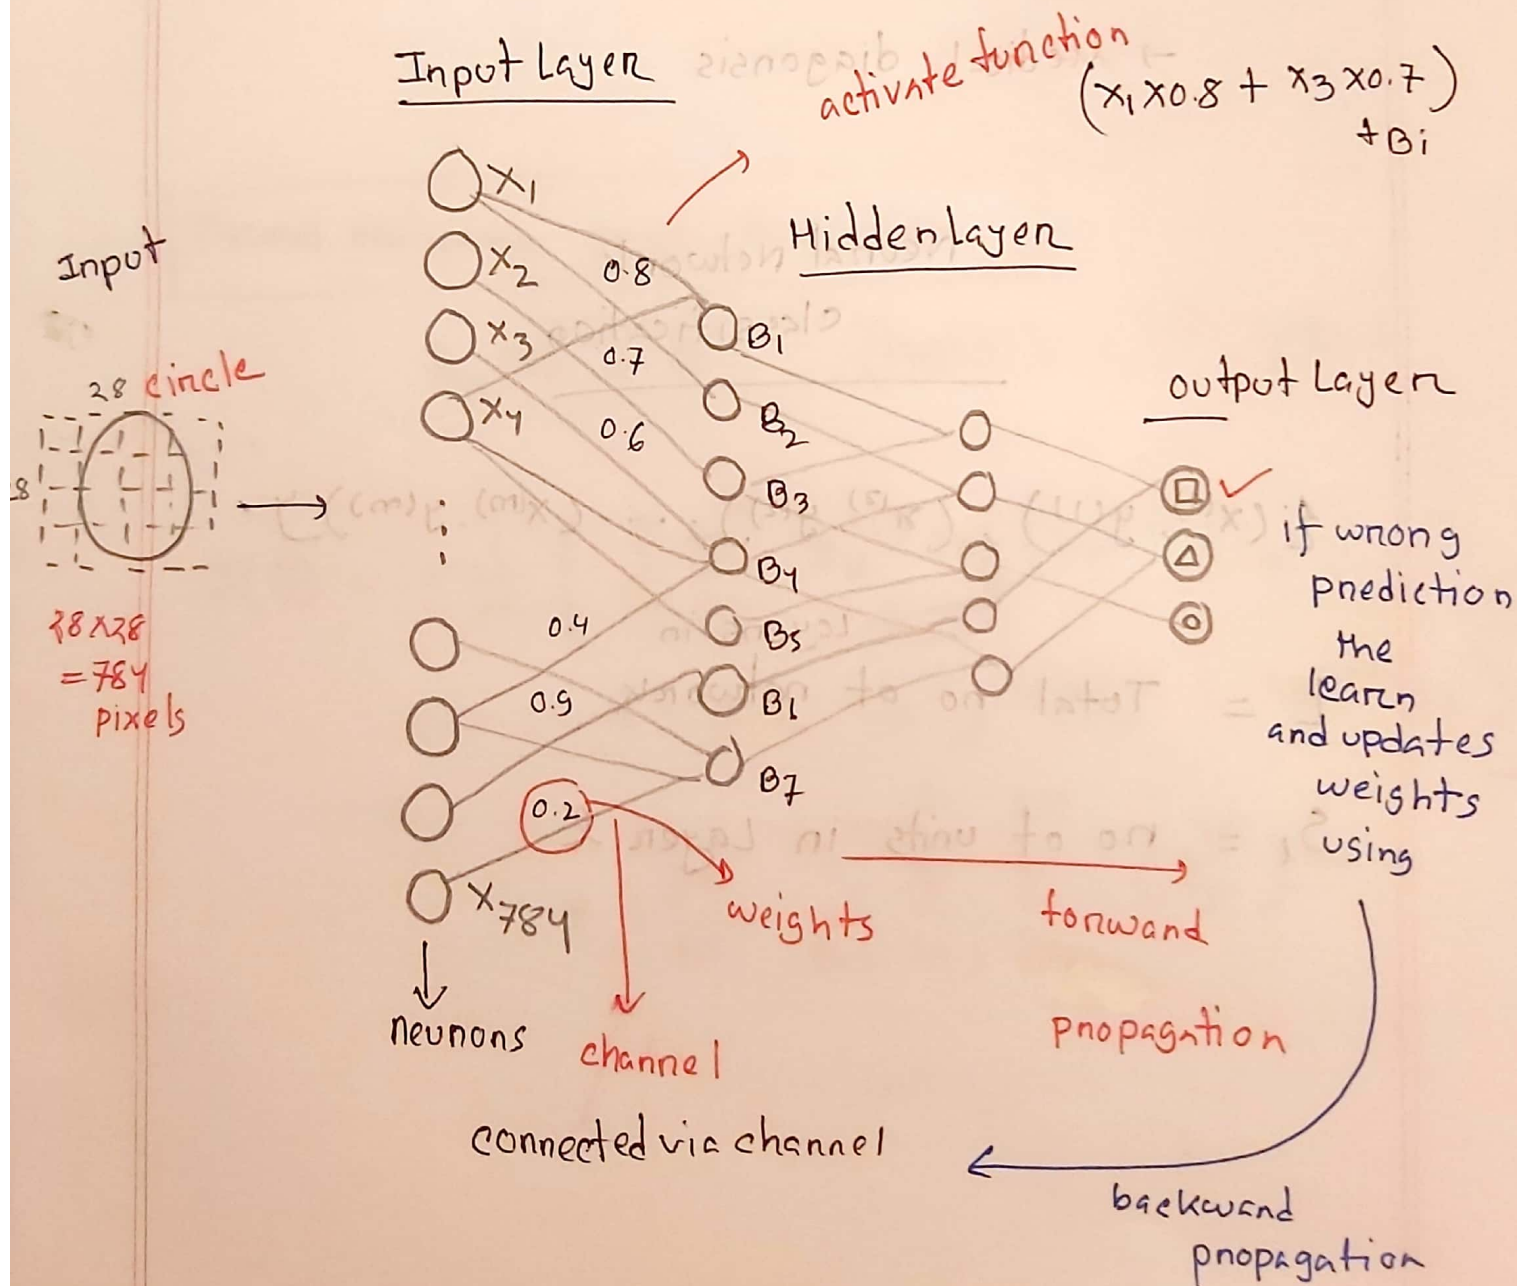 Input Layer
activate function
(x₁x0.8 + x3x0.7)
+Bi
Hidden Layer
Input
28 circle
8
28x28
=784
pixels
X₁
X₂
X₃
X₄
X₇₈₄
0.8
0.7
0.6
0.4
0.9
0.2
B₁
B₂
B₃
B₄
B₅
B₆
B₇
output Layer
if wrong
prediction
the
learn
and updates
weights
using
weights
forward
propagation
neurons
channel
connected via channel
backward
propagation